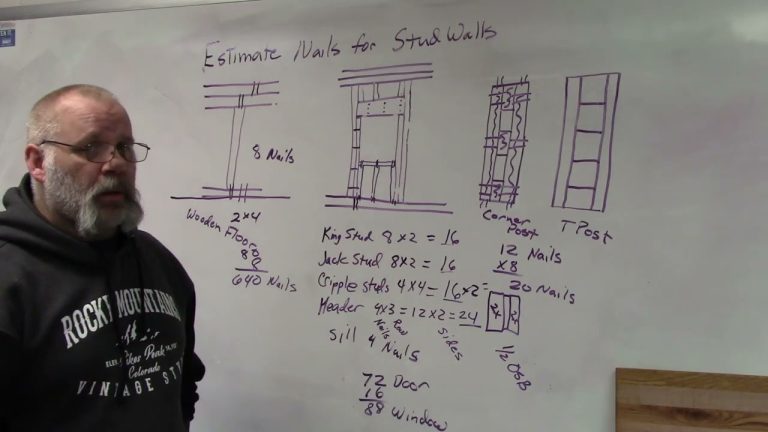 Estimate Nails for Stud Walls
8 Nails
2x4
Wooden Floor
80
8
640 Nails
King Stud 8x2 = 16
Jack Stud 8x2 = 16
Cripple studs 4x4 = 16 x2 =
Header 4x3 = 12x2 = 24
Nails Row sides
Sill 4 Nails
72 Door
16
88 Window
Corner Post
12 Nails
x8
20 Nails
2x 2x
1/2 OSB
T Post
ROCKY MOUNTAINS
Pikes Peak
Colorado
VINTAGE